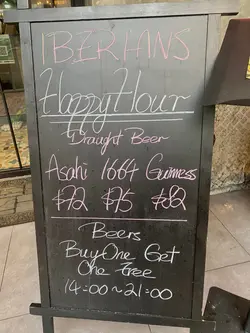 IBERHANS
Happy Hour
Draught Beer
Asahi 1664 Guinness
$72 $75 $82
Beers
Buy One Get
One Free
14:00~21:00